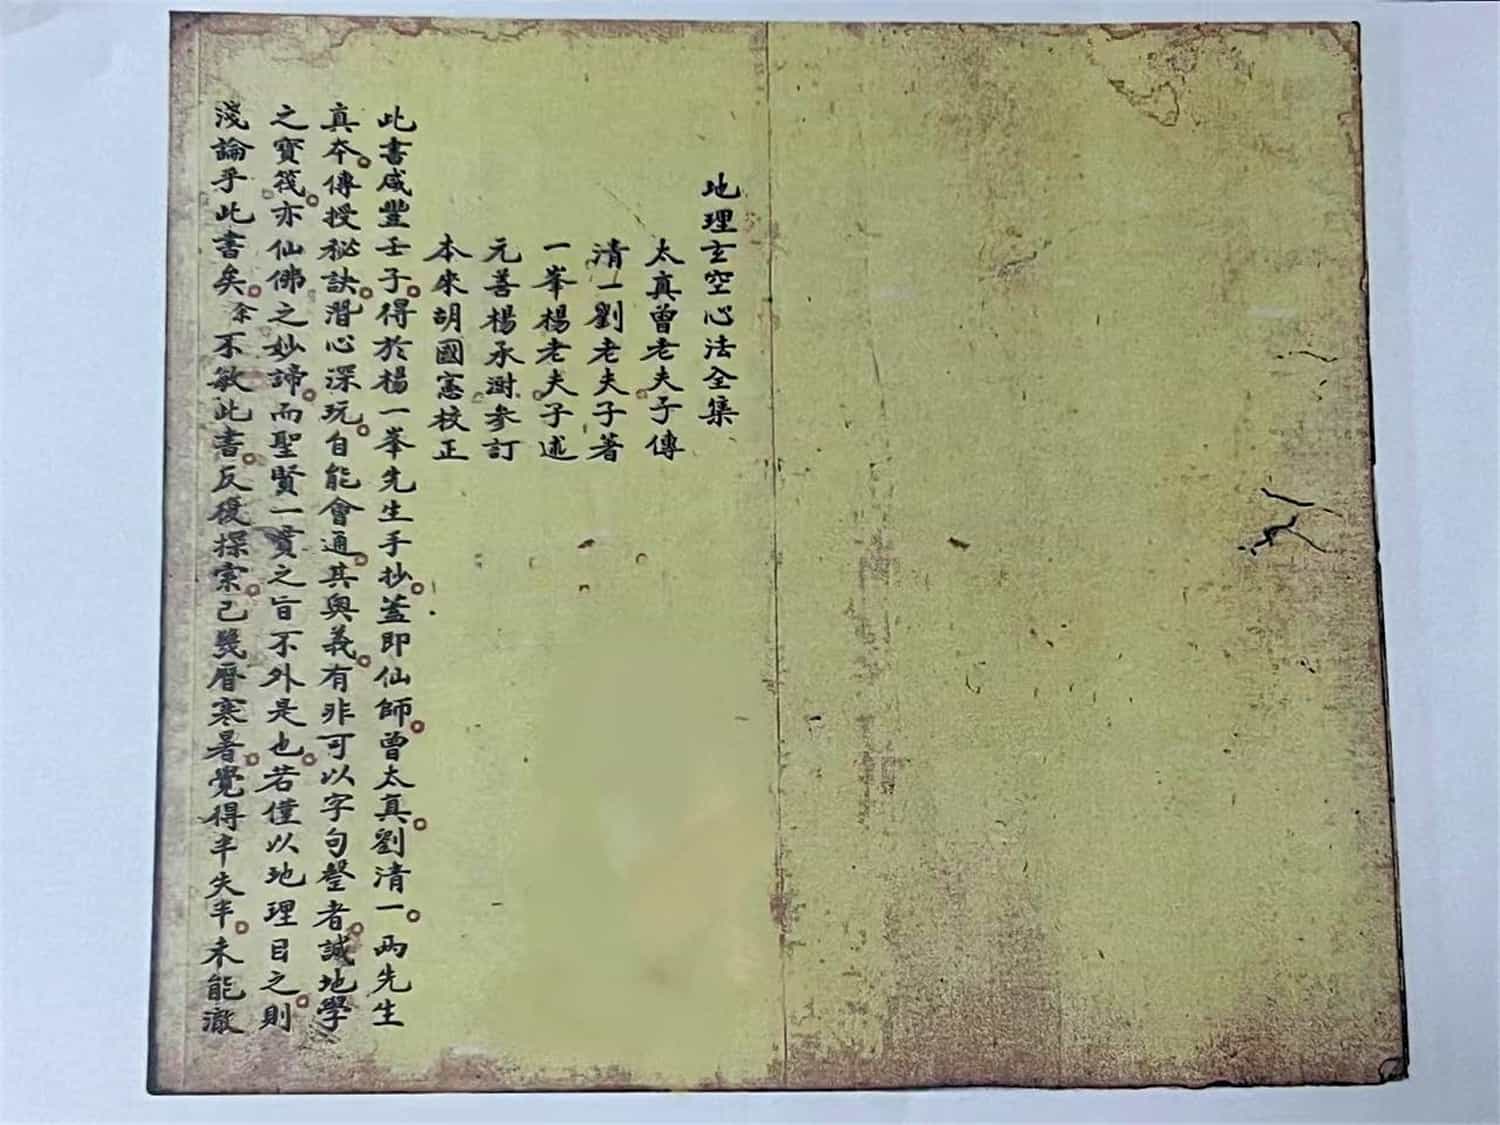 地理玄空心法全集
太真曾老夫子傳
清一劉老夫子著
一峯楊老夫子述
元善楊承澍參訂
本來胡國憲校正
此書咸豐壬子得於楊一峯先生手抄蓋即仙師曾太真劉清一兩先生
真本傳授秘訣潛心深玩自能會通其奥義有非可以字句罄者誠地學
之寶筏亦仙佛之妙諦而聖賢一貫之旨不外是也若僅以地理目之則
淺論乎此書矣余不敏此書反復探索己幾曆寒暑覺得半失半未能澈